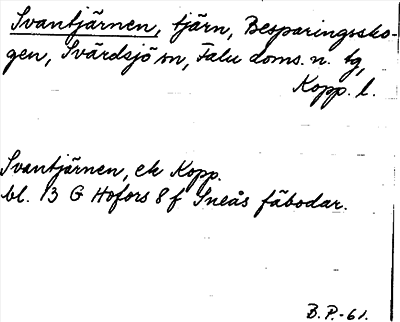 Svantjärnen, tjärn, Besparingssko-
gen, Svärdsjö sn, Falu doms. n. tg,
Kopp. l.
Svantjärnen, ek Kopp.
bl. 13 G Hofors 8 f Sneås fäbodar.
B.P.-61.